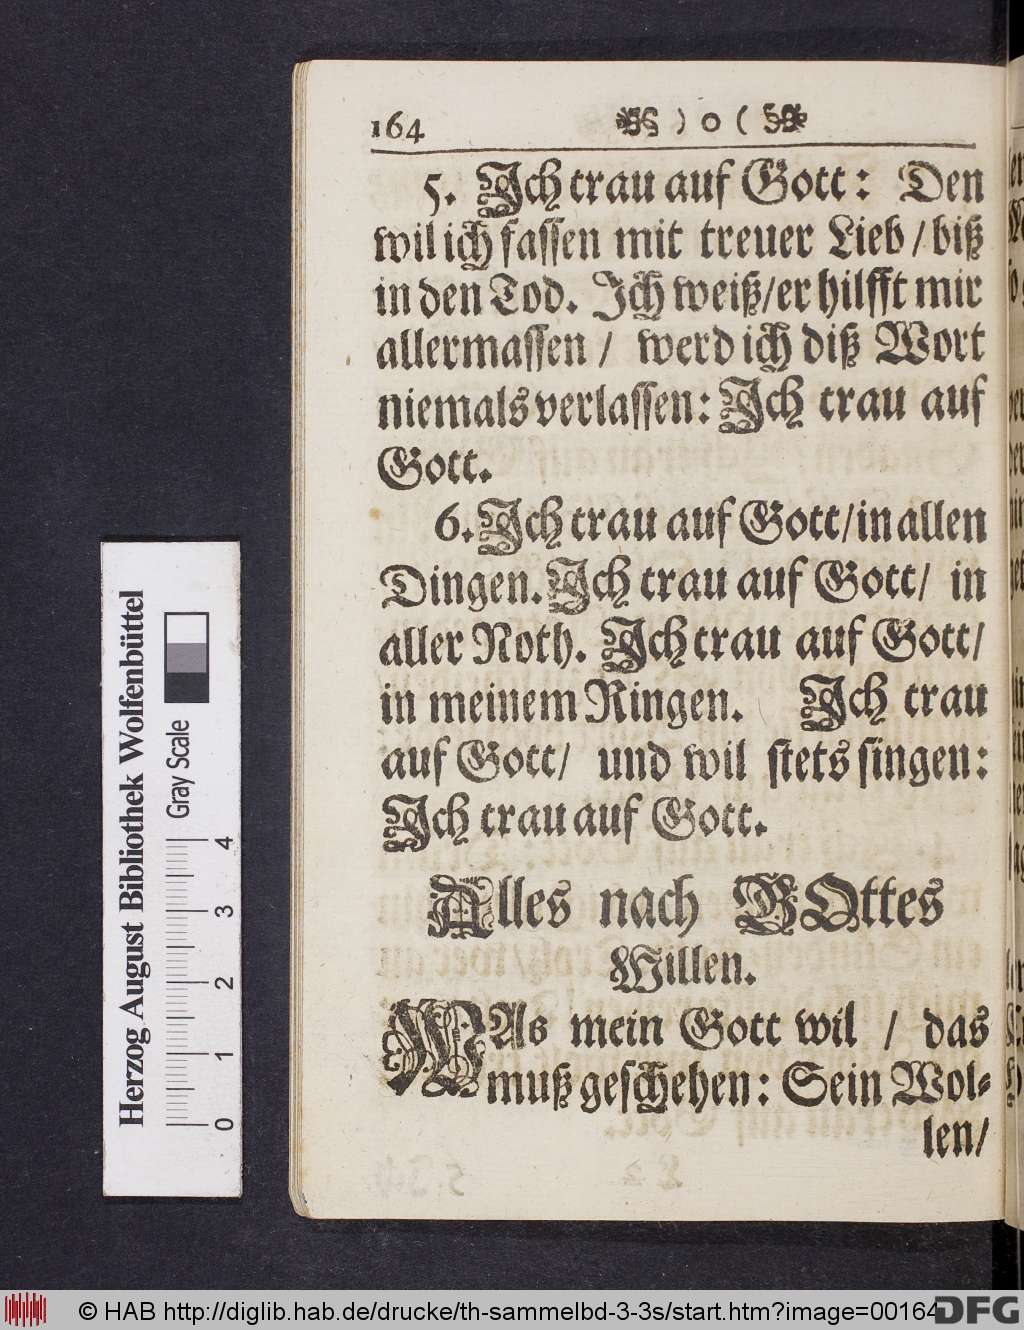 164 ) o (
5. Ich trau auf Gott: Den
wil ich fassen mit treuer Lieb / biß
in den Tod. Ich weiß/er hilfft mir
allermassen / werd ich diß Wort
niemals verlassen: Ich trau auf
Gott.
6. Ich trau auf Gott/in allen
Dingen. Ich trau auf Gott/ in
aller Noth. Ich trau auf Gott/
in meinem Ringen. Ich trau
auf Gott/ und wil stets singen:
Ich trau auf Gott.
Alles nach GOttes
Willen.
WAs mein Gott wil / das
muß geschehen: Sein Wol-
len/
Herzog August Bibliothek Wolfenbüttel
Gray Scale
0 1 2 3 4
© HAB http://diglib.hab.de/drucke/th-sammelbd-3-3s/start.htm?image=00164
DFG